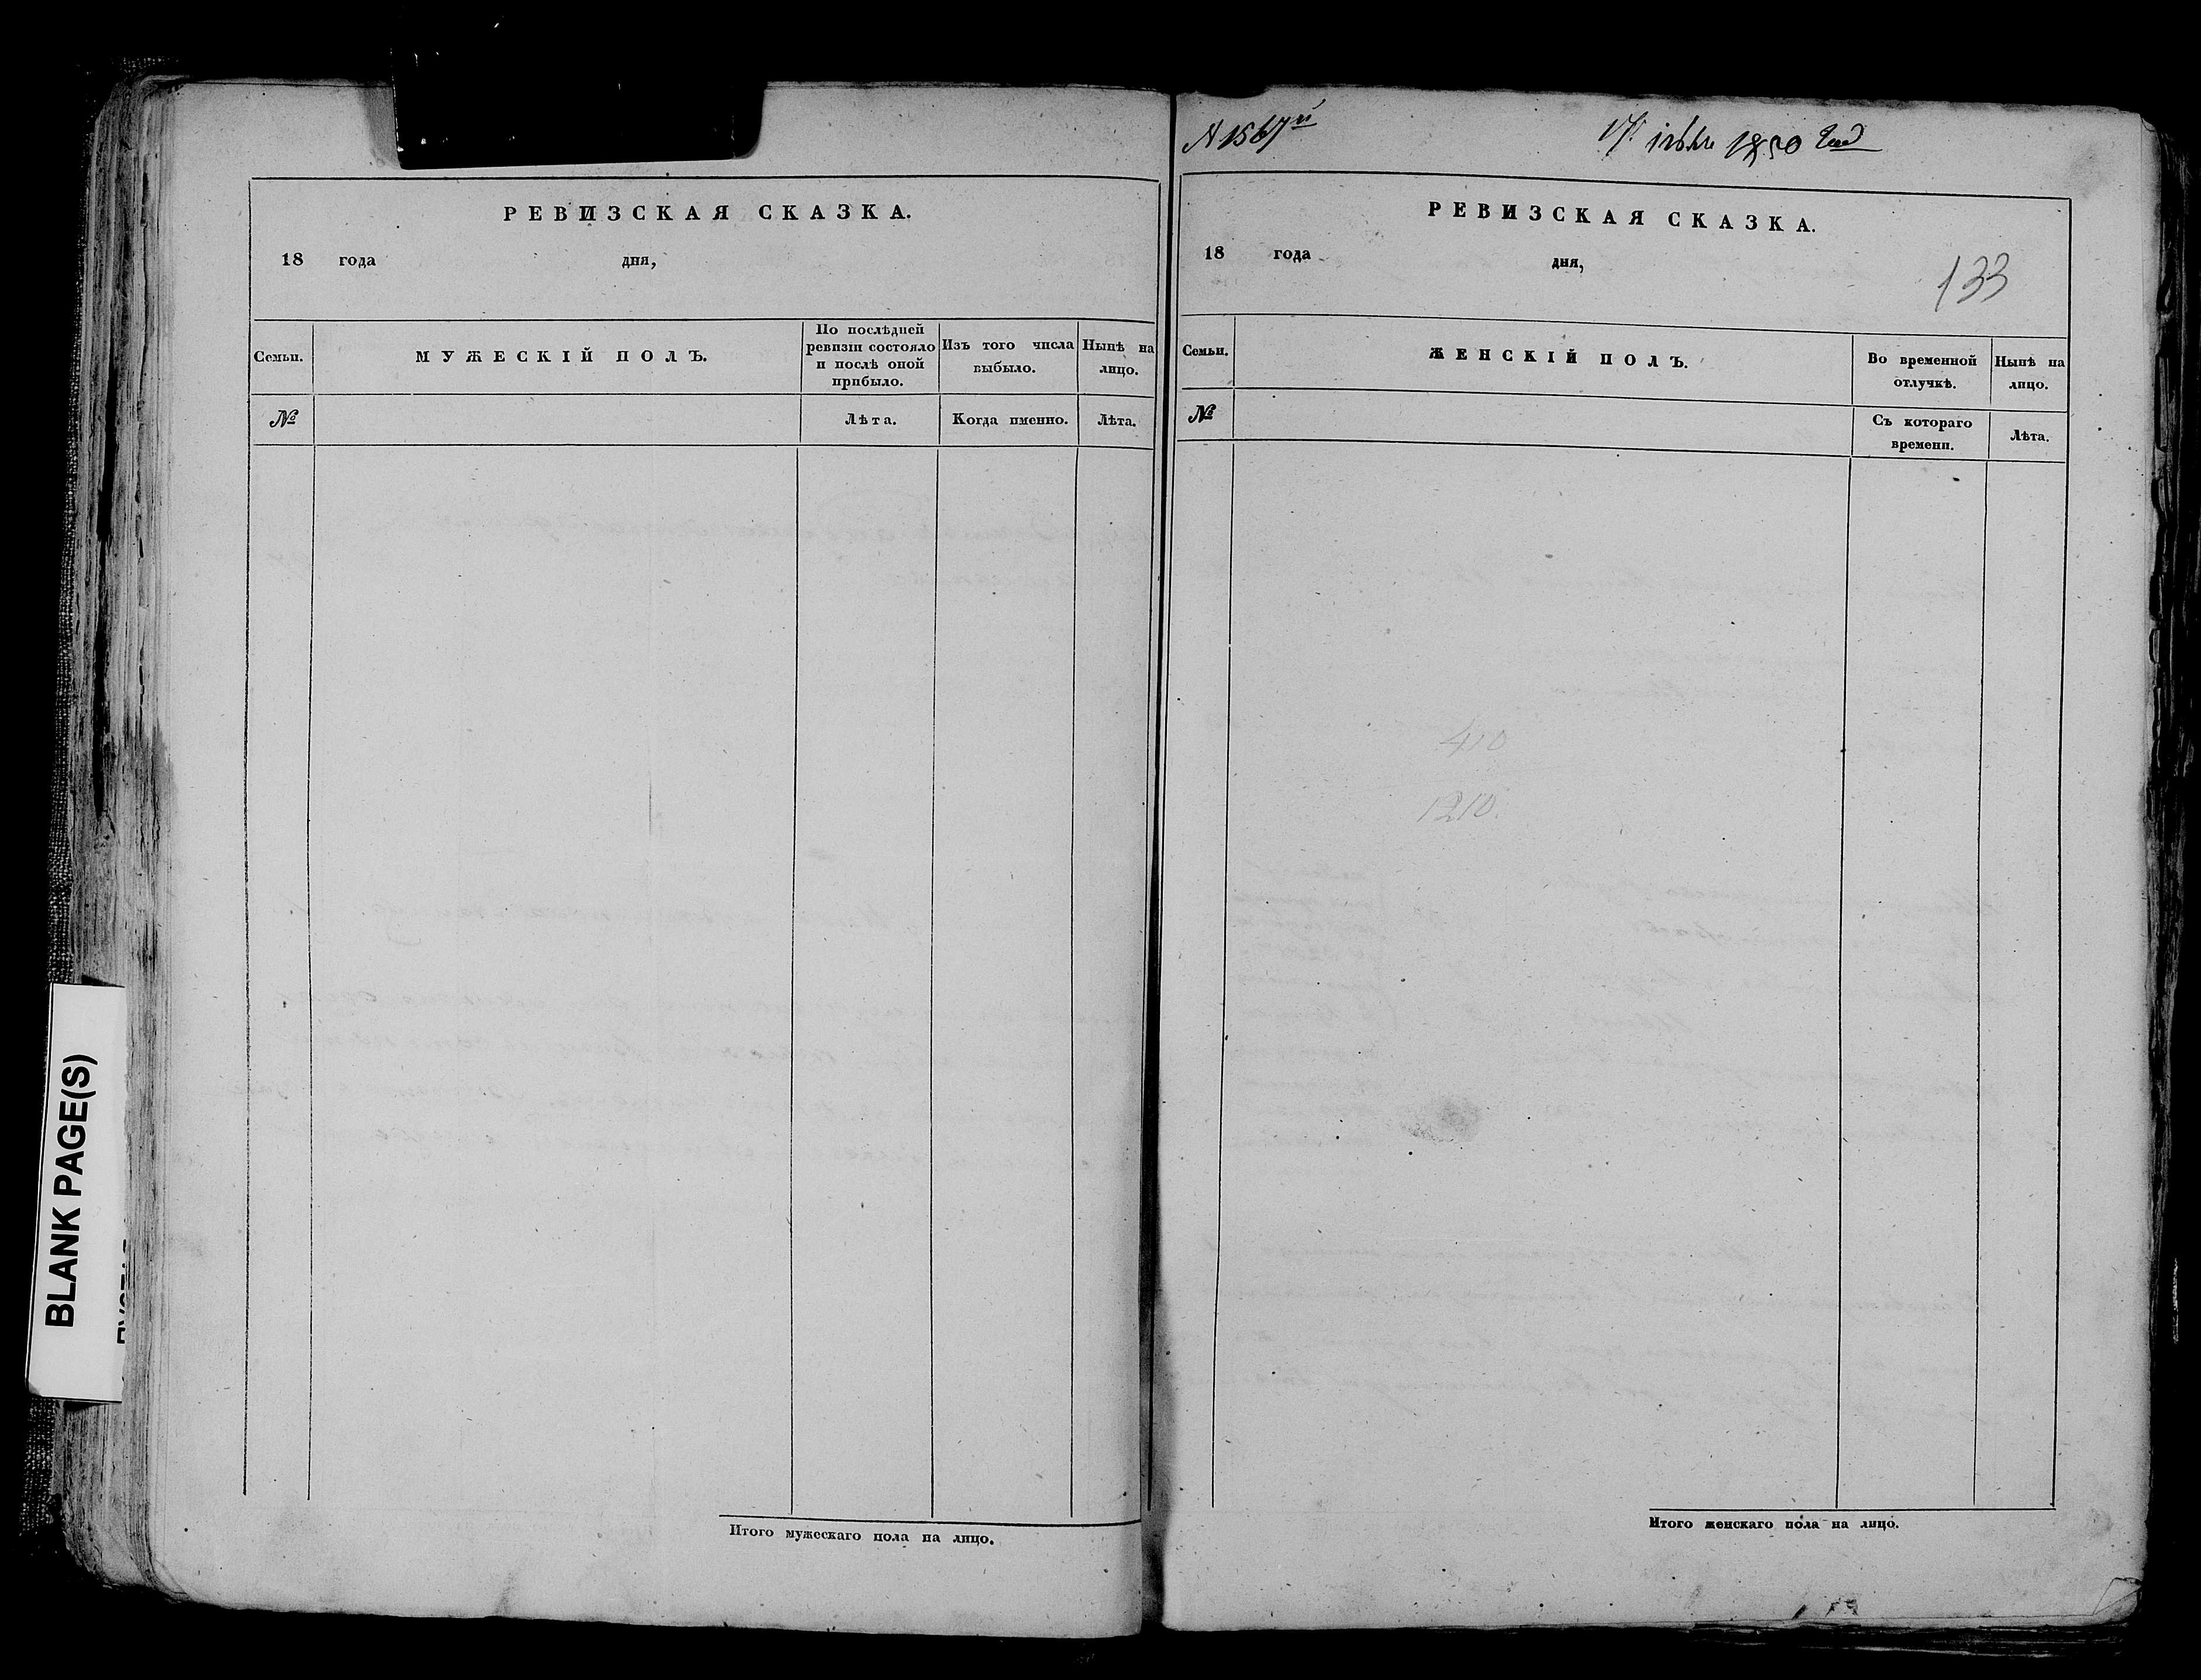 РЕВИЗСКАЯ СКАЗКА.
18 года дня,
Семьи.
МУЖЕСКІЙ ПОЛЪ.
По послѣдней ревизіи состояло и послѣ оной прибыло.
Изъ того числа выбыло.
Нынѣ на лицо.
№
Лѣта.
Когда именно.
Лѣта.
Итого мужескаго пола на лицо.
BLANK PAGE(S)
N 1567й
1850 года
РЕВИЗСКАЯ СКАЗКА.
18 года дня,
133
Семьи.
ЖЕНСКІЙ ПОЛЪ.
Во временной отлучкѣ.
Нынѣ на лицо.
№
Съ котораго времени.
Лѣта.
410
1210.
Итого женскаго пола на лицо.